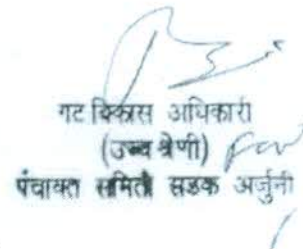 गट विकास अधिकारी
(उच्च श्रेणी)
पंचायत समिती सडक अर्जुनी